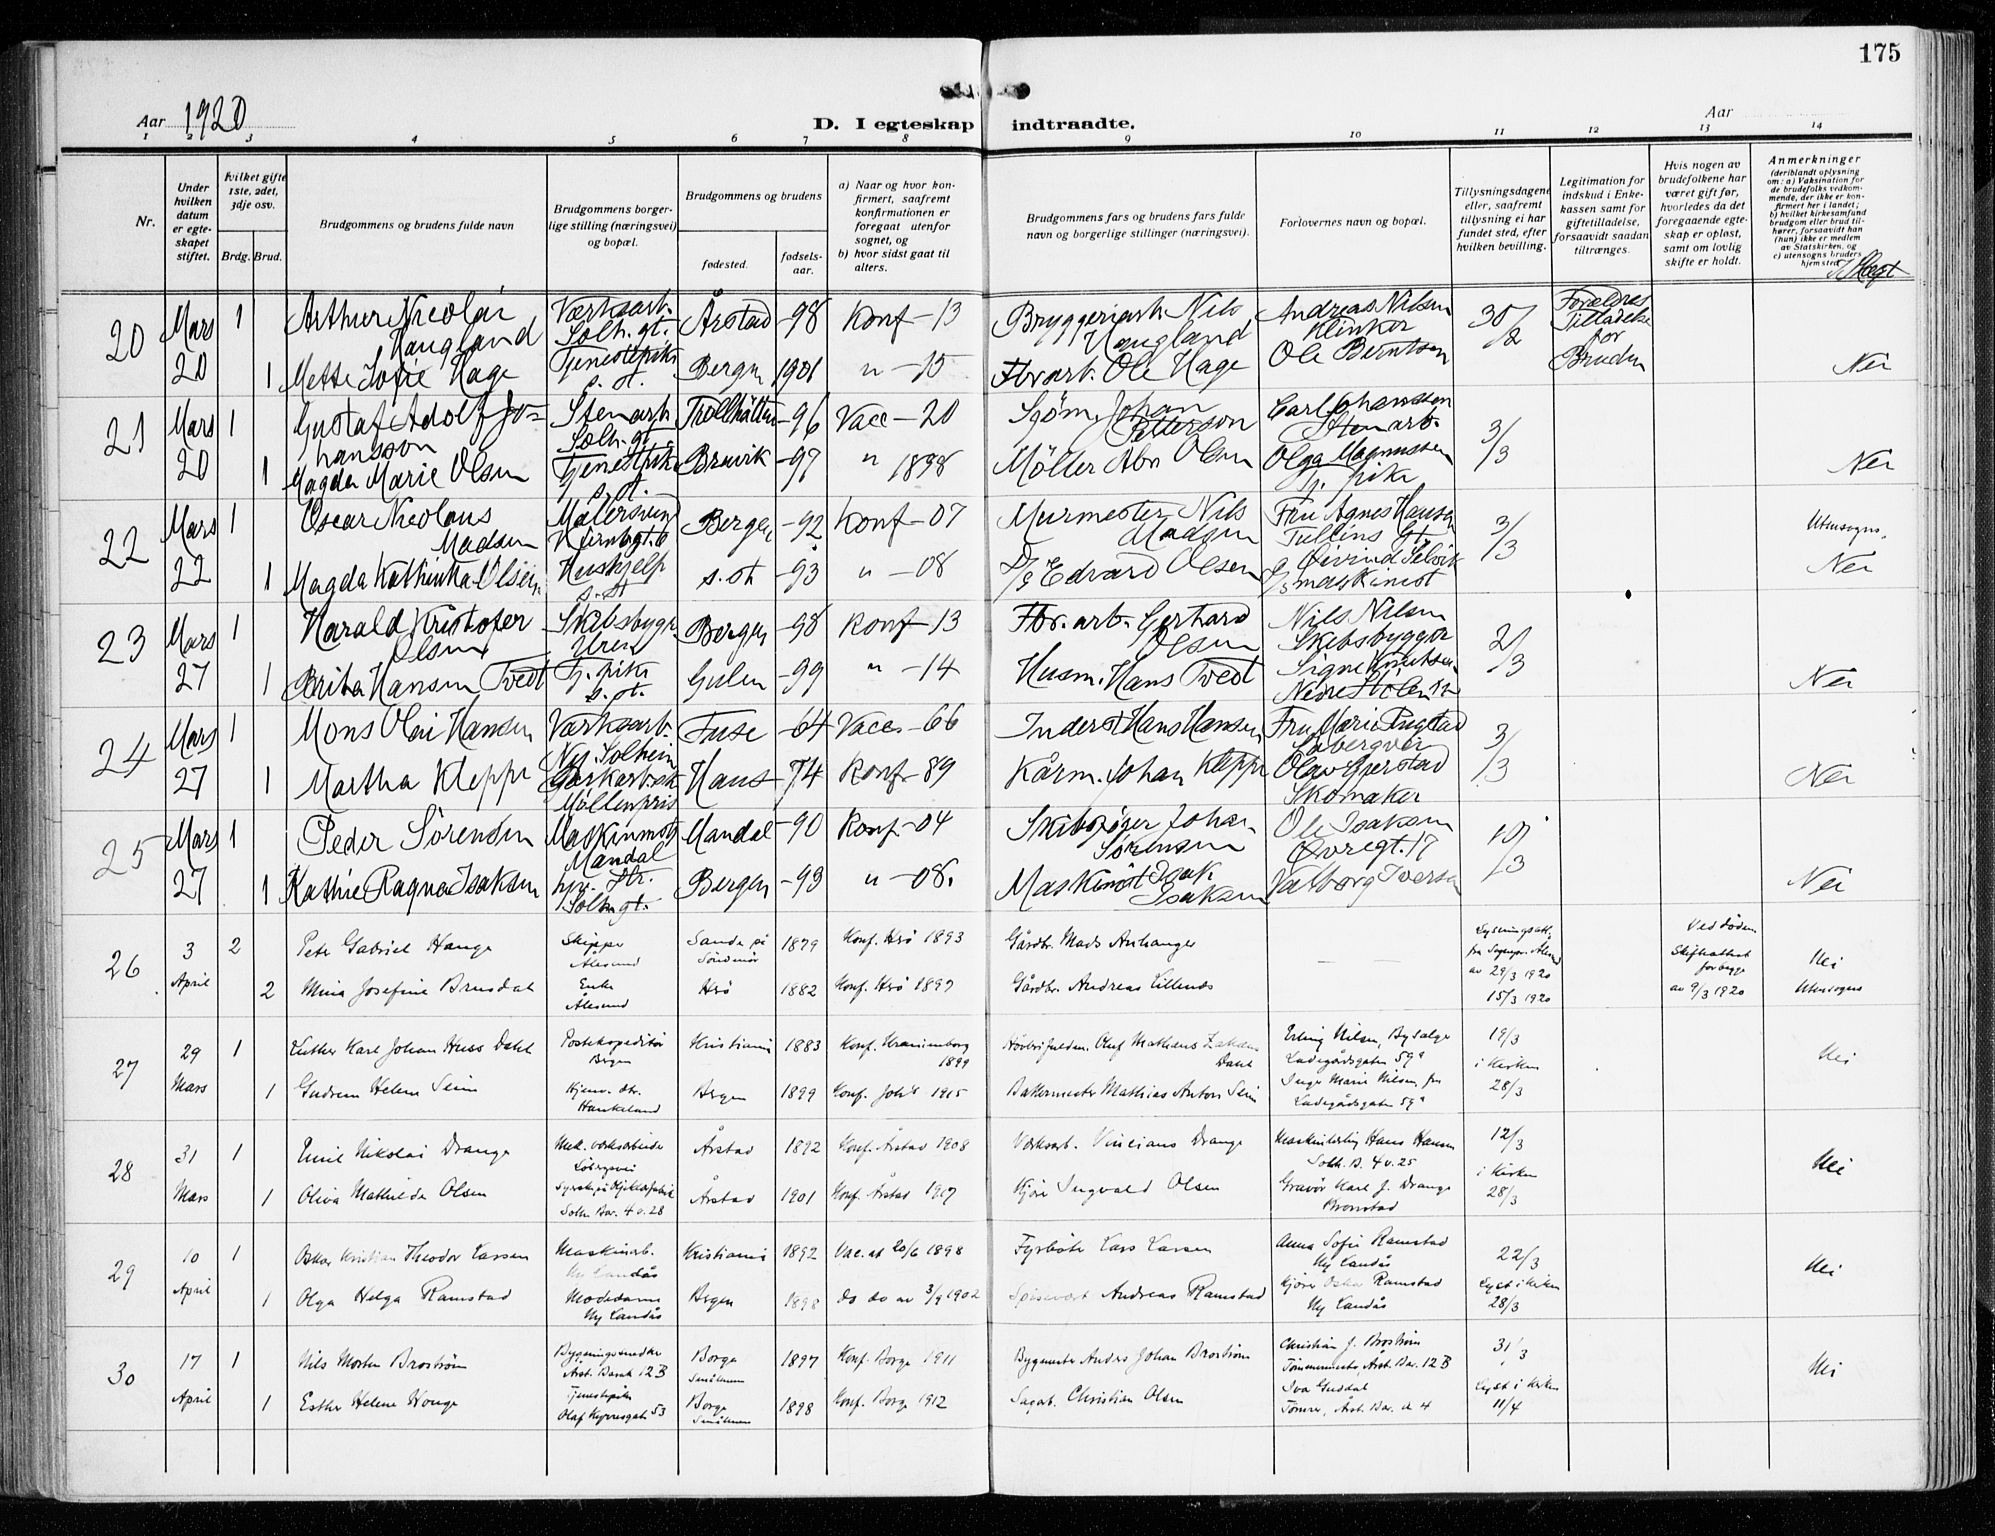 175
Aar 1920
D. I egteskap indtraadte.
Aar
1 2 3 4 5 6 7 8 9 10 11 12 13 14
Nr.
Under hvilken datum er egteskapet stiftet.
Hvilket gifte 1ste, 2det, 3dje osv.
Brdg. Brud.
Brudgommens og brudens fulde navn
Brudgommens borgerlige stilling (næringsvei) og bopæl.
Brudgommens og brudens
fødested. fødselsaar.
a) Naar og hvor konfirmert, saafremt konfirmationen er foregaat utenfor sognet, og
b) hvor sidst gaat til alters.
Brudgommens fars og brudens fars fulde navn og borgerlige stillinger (næringsvei).
Forlovernes navn og bopæl.
Tillysningsdagene eller, saafremt tillysning ei har fundet sted, efter hvilken bevilling.
Legitimation for indskud i Enkekassen samt for giftetilladelse, forsaavidt saadan tiltrænges.
Hvis nogen av brudefolkene har været gift før, hvorledes da det foregaaende egteskap er opløst, samt om lovlig skifte er holdt.
Anmerkninger
(deriblandt oplysning om: a) Vaksination for de brudefolks vedkommende, der ikke er konfirmert her i landet; b) hvilket kirkesamfund brudgom eller brud tilhører, forsaavidt han (hun) ikke er medlem av Statskirken, og c) utensogns bruders hjemsted.
20 Mars 1 Arthur Nicolai Haugland Værksarb. Solh. gt. Årstad -98 Konf -13 Bryggeriarb. Nils Haugland Andreas Nilsen Klinker 30/2 Forældres Tilladelse for Bruden
20 1 Mette Sofie Hage Tjenestepike s. st. Bergen 1901 " -15 Fbr.arb. Ole Hage Ole Berntsen Nei
21 Mars 1 Gustaf Adolf Johansson Stenarb. Solh. gt. Trollhätten -96 Vacc -20 Sjøm. Johan Petterson Carl Johanssen Stenarb. 3/3
20 1 Magda Marie Olsen Tjenestpike s. st. Bruvik -97 " 1898 Møller Abr Olsen Olga Magnussen Tj. pike Nei
22 Mars 1 Oscar Nicolaus Madsen Malersvend Bergen -92 Konf -07 Murmester Nils Madsen Fru Agnes Hansen Tullins Gt. 3/3 Utensogns.
22 1 Magda Kathinka Olsen Hushjelp s. st s. st -93 " -08 D/s Edvard Olsen Øivind Selvik maskinist Nei
23 Mars 1 Harald Kristofer Olsen Skibsbygr. Uren Bergen -98 Konf -13 Fbr. arb. Gerhard Olsen Nils Nilsen Skibsbygger 2/3
27 1 Brita Hansen Tvedt Tj. pike s. st. Gulen -99 " -14 Husm. Hans Tvedt Signe Knutsen Nedre Stølen 12 Nei
24 Mars 1 Mons Olai Hansen Værksarb. Ny Solheim Fuse -64 Vacc -66 Inderst Hans Hansen Fru Marie 3/3
27 1 Martha Kleppe Møllenpris Haus -74 Konf -89 Kårm. Johan Kleppe Olav Gjerstad Skomaker Nei
25 Mars 1 Peder Sørensen Maskinmst Mandal Mandal -90 Konf -04 Johan Sørensen Ole Isaksen Øvregt. 17 10/3
27 1 Kathie Ragna Isaksen hjv. str. Solh. gt. Bergen -93 " -08. Maskinist Isak Isaksen Valborg Iversen Nei
26 3 April 2 Peter Gabriel Hauge Skipper Ålesund Sande på Søndmør 1879 Konf. Herø 1893 Gårdbr. Mads Lysningsatt. fra Sogneprs. Ålesund av 29/3 1920 Ved døden Skifteattest for begge Nei
2 Mina Josefine Brusdal Enke Ålesund Herø 1882 Konf. Herø 1897 Gårdbr. Andreas Lillenæs 15/3 1920 av 9/3 1920 Utensogns
27 29 Mars 1 Luther Karl Johan Huss Dahl Postekspeditør Bergen Kristiania 1883 Konf. Uranienborg 1899 Oluf Mathæus Dahl Erling Nilsen, Ladegårdsgaten 59a 19/3 i kirken Nei
1 Gudrun Helene Seim Hjemv. dtr. Haukeland Bergen 1899 Konf. Johs 1915 Bakermester Mathias Anton Seim Inga Marie Nilsen, fru Ladegårdsgaten 59a 28/3
28 31 Mars 1 Emil Nikolai Drange Mek. værksarbeider Løbergsvei Årstad 1892 Konf. Årstad 1908 Værksarb. Drange Hans Hansen Solh. B. 4 v. 25 12/3 i kirken Nei
1 Oliva Mathilde Olsen Solhm Bar. 4 v. 28 Årstad 1901 Konf. Årstad 1917 Kjører Ingvald Olsen Gravør Karl J. Drange Kronstad 28/3
29 10 April 1 Oskar Kristian Theodor Larsen Maskinarb. Ny Landås Kristiania 1892 Vac. at 20/6 1898 Fyrbøter Lars Larsen Anna Sofie Ramstad Ny Landås 22/3 Nei
1 Olga Helga Ramstad Modedame Ny Landås Bergen 1898 do do av 3/9 1902 Spisevært Andreas Ramstad Kjører Oskar Ramstad Ny Landås Lyst i kirken 28/3
30 17 April 1 Nils Morten Broström Bygningssnedker Årst. Barak 12 B Borge Smålenene 1897 Konf. Borge 1911 Bygmester Anders Johan Broström Christian J. Broström Tømmermester, Årst. Bar. 12 B 31/3 Nei
1 Esther Helene Houge Tjenestepike Olaf Kyrresgate 53 Borge Smålenene 1898 Konf. Borge 1912 Sagarb. Christian Olsen Tømrer, Årst. Bar. 4 Lyst i kirken 11/4